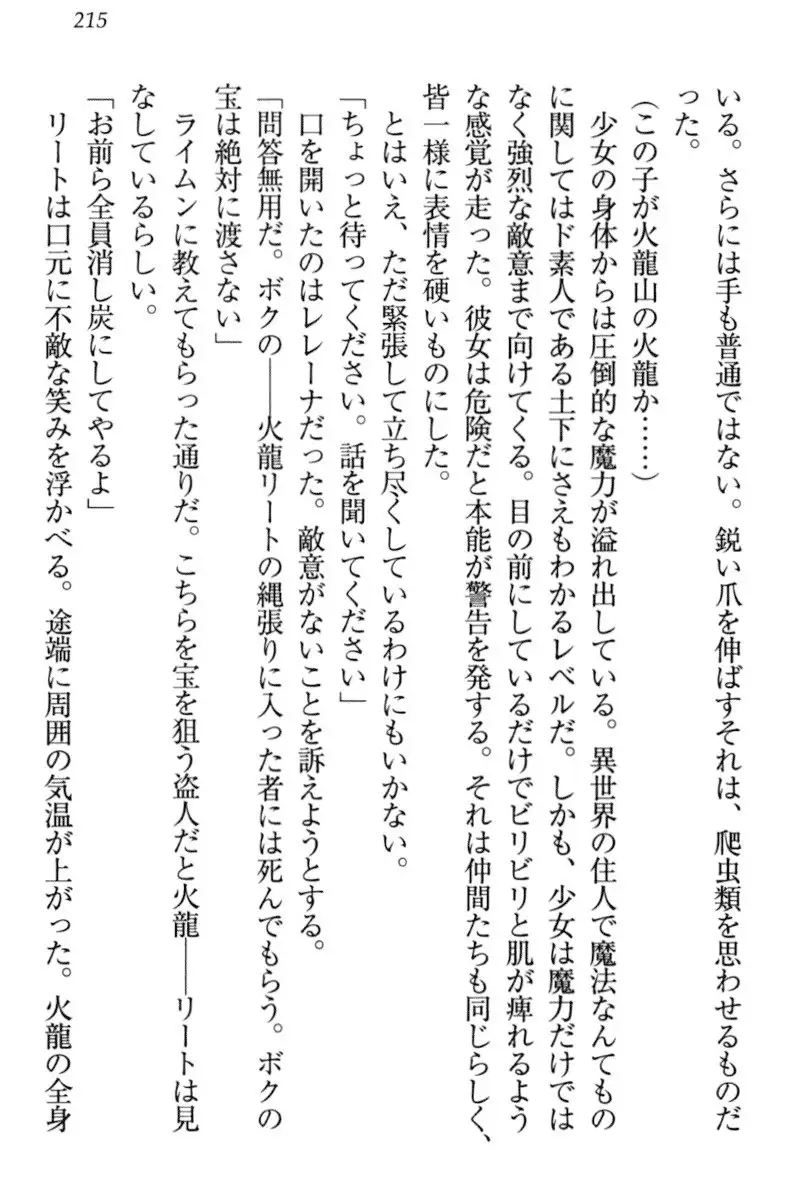 215
いる。さらには手も普通ではない。鋭い爪を伸ばすそれは、爬虫類を思わせるものだ
った。
(この子が火龍山の火龍か……)
　少女の身体からは圧倒的な魔力が溢れ出している。異世界の住人で魔法なんてもの
に関してはド素人である土下にさえもわかるレベルだ。しかも、少女は魔力だけでは
なく強烈な敵意まで向けてくる。目の前にしているだけでビリビリと肌が痺れるよう
な感覚が走った。彼女は危険だと本能が警告を発する。それは仲間たちも同じらしく、
皆一様に表情を硬いものにした。
　とはいえ、ただ緊張して立ち尽くしているわけにもいかない。
「ちょっと待ってください。話を聞いてください」
　口を開いたのはレレーナだった。敵意がないことを訴えようとする。
「問答無用だ。ボクの――火龍リートの縄張りに入った者には死んでもらう。ボクの
宝は絶対に渡さない」
　ライムンに教えてもらった通りだ。こちらを宝を狙う盗人だと火龍――リートは見
なしているらしい。
「お前ら全員消し炭にしてやるよ」
　リートは口元に不敵な笑みを浮かべる。途端に周囲の気温が上がった。火龍の全身